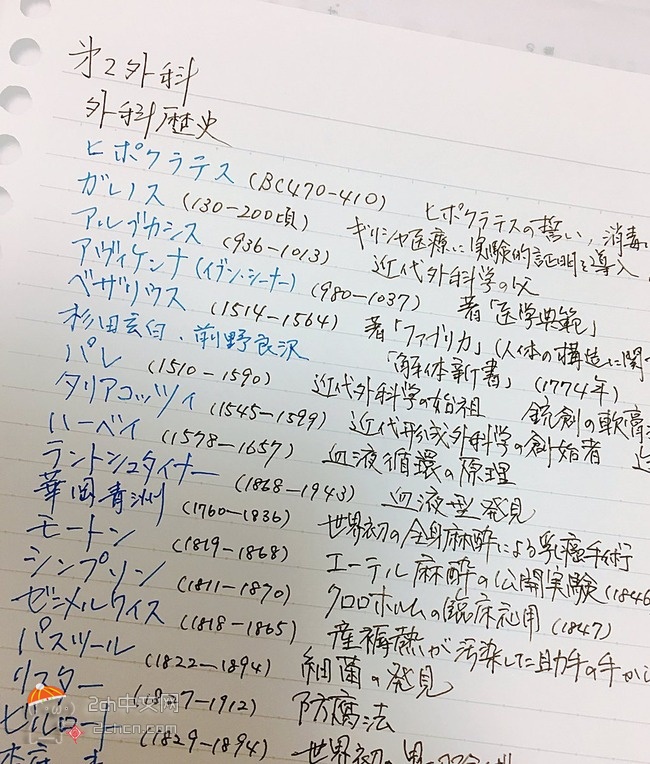 第2外科
外科歴史
ヒポクラテス (BC470-410) ヒポクラテスの誓い, 消毒
ガレノス (130-200頃) ギリシャ医療に実験的証明を導入
アルブカシス (936-1013) 近代外科学の父
アヴィケンナ (イブン・シーナー) (980-1037) 著「医学典範」
ベザリウス (1514-1564) 著「ファブリカ」(人体の構造に関
杉田玄白・前野良沢 「解体新書」 (1774年)
パレ (1510-1590) 近代外科学の始祖 銃創の軟膏
タリアコッツィ (1545-1599) 近代形成外科学の創始者
ハーベイ (1578-1657) 血液循環の原理
ラントシュタイナー (1868-1943) 血液型発見
華岡青洲 (1760-1836) 世界初の全身麻酔による乳癌手術
モートン (1819-1868) エーテル麻酔の公開実験 (1846
シンプソン (1811-1870) クロロホルムの臨床応用 (1847)
ゼンメルワイス (1818-1865) 産褥熱が汚染した助手の手から
パスツール (1822-1894) 細菌の発見
リスター 7-1912) 防腐法
ビルロート (1829-1894) 世界初の胃
2ch中文网
2chcn.com